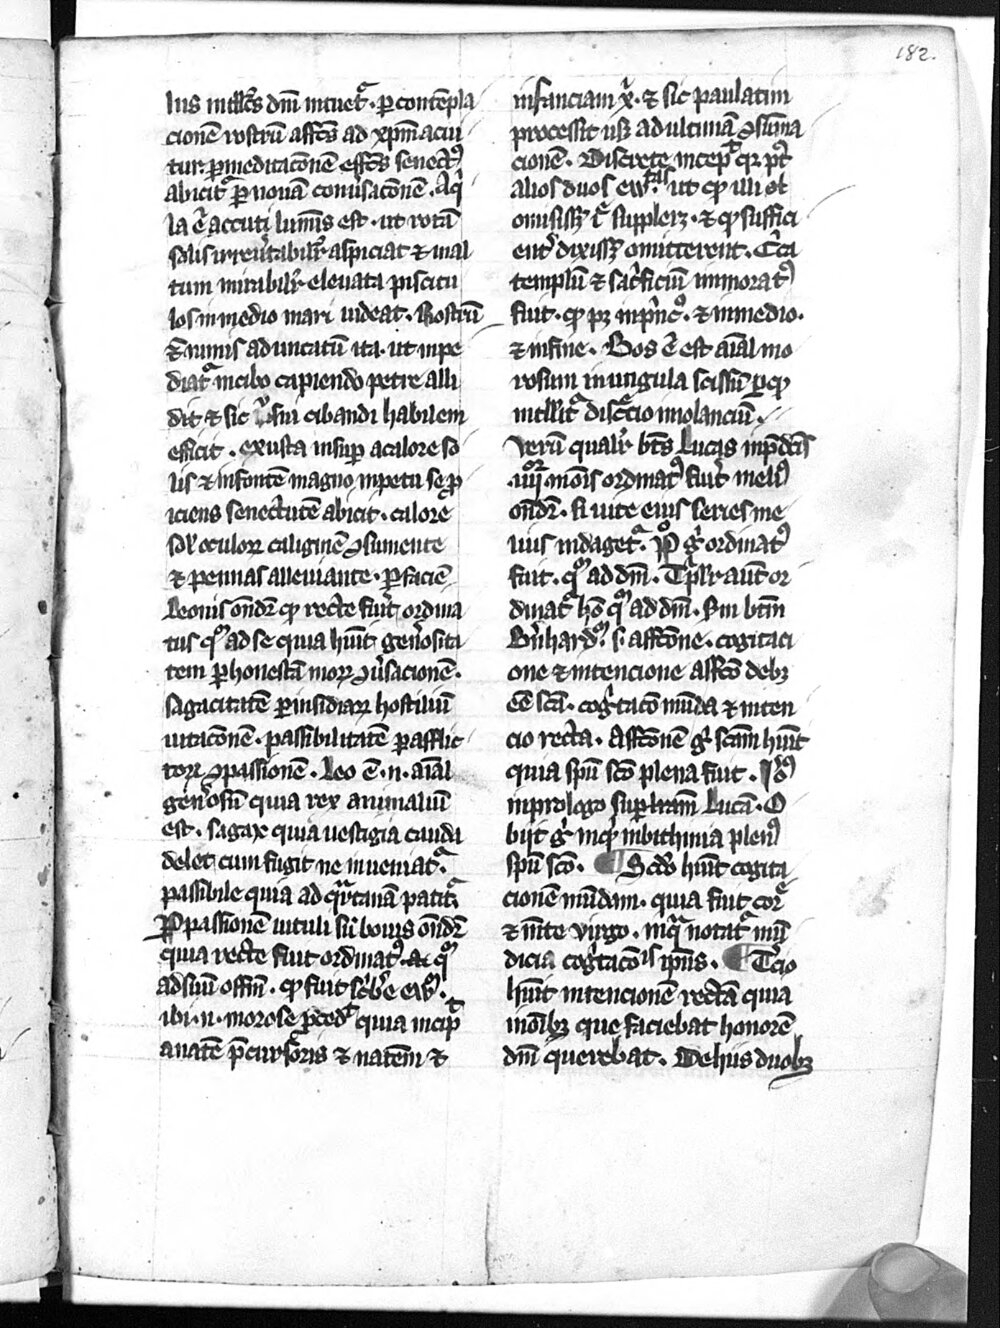 182.
lus intllc̄s dn̄m intuet᷑. ꝑ contēpla
cionē rostrū affc̄s ad xp̄m acui
tur. ꝑ meditac̄onē effc̄s senect᷒
abicit᷑ ꝑ nouā conu͛sac̄onē. Aqͥ
la .n. accuti luminis est. ut rotā
solis irreu͛tabilit͛ aspiciat ⁊ in al
tum mirabilr͛ eleuata piscicu
los in medio mari uideat. Rostrū
⁊ nimis aduncatū ita. ut inpe
diat᷑ in cibo capiendo petre alli
dit ⁊ sic sui cibandi habilem
efficit. exusta insuꝑ a calore so
lis ⁊ in fontē magno inpetu se ꝓ
iciens senectutē abicit. calore
sol̛ oculoꝝ caliginē ꝯsumente
⁊ pennas alleuiante. Ꝑ faciē
Leonis on̄dr̄ ꝙ recte fuit ordina
tus qͦ ad se quia hūit gen͛osita
tem ꝑ honestā moꝝ ꝯu͛sacionē.
sagacitatē ꝑ insidiaꝝ hostiliū
uitac̄onē. passibilitatē ꝑ afflic
toꝝ ꝯpassionē. Leo ē .n. aīal
gen͛osū quia rex animaliū
est. sagax quia uestigia cauda
delet cum fugit ne inueniat᷑.
passibile quia ad qͣrtanā patit᷑.
Ꝑ passionē uituli siū bouis on̄dr̄
quia recte fuit ordinat᷒ qͦ
ad suū offm̄. ꝙ fuit sc͛b͛e ew̄.
ibi .n. morose ꝓcedͭ quia incipͭ
a natē p̄cursoris ⁊ natēm ⁊
infanciam x̄. ⁊ sic paulatim
processit usꝫ ad ultimā ꝯsūma
cionē. Discrete incepͭ qꝛ pͭ
alios duos ew̄ᵗᵃˢ ut ꝙ illi
omisissꝫ t͛ suppleꝫ. ⁊ ꝙ suffici
ent͛ dixissꝫ omitterent. Circa
templū ⁊ sac͛ficiū inmorat᷒
fuit. ꝙ pꝫ in pͥncͦ. ⁊ in medio.
⁊ in fine. Bos ē est aīal mo
rosum in ungula scissū ꝑ ꝙ
intllit᷑ disc͛cio inolanciū.
Verū qualit͛ bt̄s Lucas in p̄dc̄is
.iiijᵒʳ mōis ordinat᷒ fuit͛ meli᷒
on̄dr̄. si uite eius series me
lius indaget᷑. Pͦ gͦ ordinat᷒
fuit. qͦ ad dm̄. Tp̄lr͛ aūt or
dinat᷑ hō qͦ ad dm̄. Sm̄ btm̄
Bn͛hardū. s. affc̄one. cogitaci
one ⁊ intencione affc̄o debꝫ
eē sc̄a. cogͥtac̄o mūda ⁊ inten
cio recta. Affc̄onē gͦ sc̄am hūit
quia spū sc̄o plena fuit.
in prologo suꝑ lr̄am Lucā. O
bijt gͦ inqͥ in bithinia plen᷒
spū sc̄o. ¶ Scd̄o hūit cogita
cionē mūdam. quia fuit cor͛
⁊ m̄te virgo. in qͣ notat᷑ mū
dicia cogͥtac̄oⁱˢ ipīus. ¶ Tͨio
hūit intencionē rectā quia
in oīibꝫ que faciebat honorē
dm̄ querebat. De hiis duobꝫ